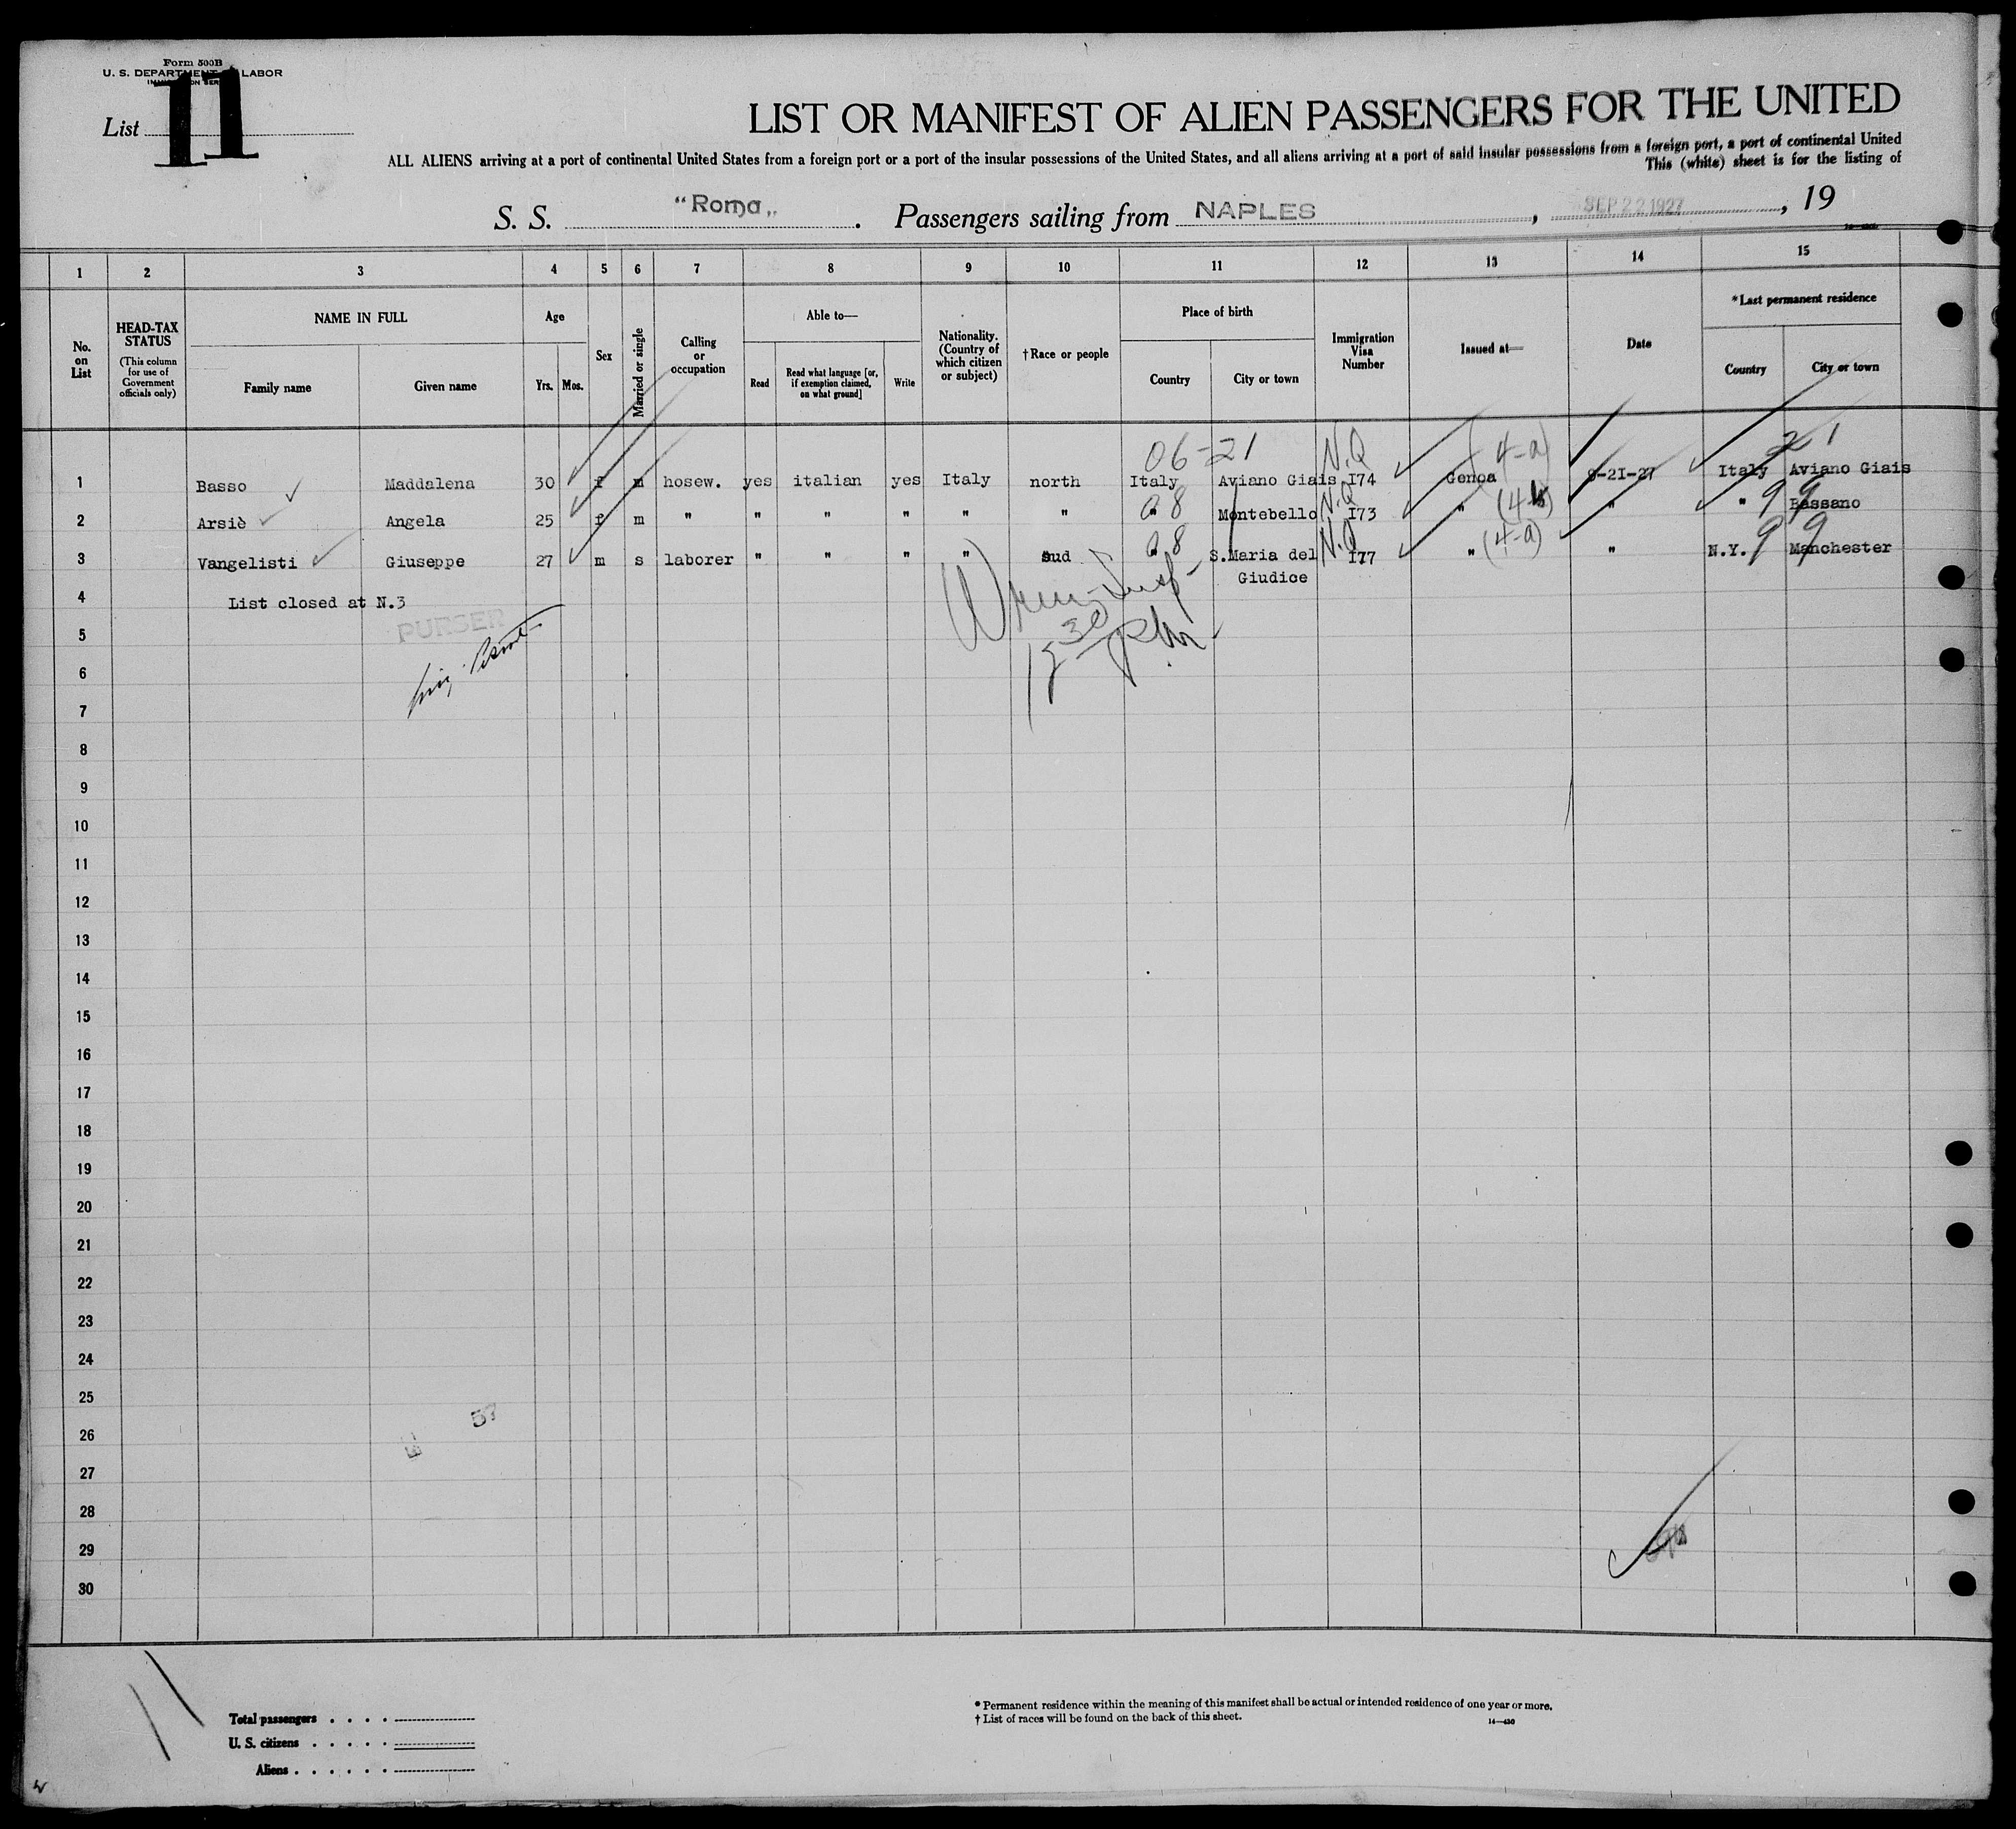 Form 500B
U. S. DEPARTMENT LABOR
List 11
LIST OR MANIFEST OF ALIEN PASSENGERS FOR THE UNITED
ALL ALIENS arriving at a port of continental United States from a foreign port or a port of the insular possessions of the United States, and all aliens arriving at a port of said insular possessions from a foreign port, a port of continental United
This (white) sheet is for the listing of
S. S. "Roma„. Passengers sailing from NAPLES, SEP 22 1927, 19
1 2 3 4 5 6 7 8 9 10 11 12 13 14 15
No. on List
HEAD-TAX STATUS (This column for use of Government officials only)
NAME IN FULL
Family name Given name
Age
Yrs. Mos.
Sex
Married or single
Calling or occupation
Able to—
Read
Read what language [or, if exemption claimed, on what ground]
Write
Nationality. (Country of which citizen or subject)
†Race or people
Place of birth
Country City or town
Immigration Visa Number
Issued at—
Date
*Last permanent residence
Country City or town
06-21 N.Q (4-a) 21
1 Basso Maddalena 30 f m hosew. yes italian yes Italy north Italy Aviano Giais I74 Genoa 9-2I-27 Italy Aviano Giais
2 Arsiè Angela 25 f m " " " " " " " 08 Montebello N.Q I73 " (4-b) " " 99 Bassano
3 Vangelisti Giuseppe 27 m s laborer " " " " sud " 08 S.Maria del N.Q I77 " (4-a) " N.Y. 99 Manchester
Giudice
4 List closed at N.3
PURSER
5
6
7
8
9
10
11
12
13
14
15
16
17
18
19
20
21
22
23
24
25
57
26
27
28
29
30
Total passengers
U. S. citizens
Aliens
* Permanent residence within the meaning of this manifest shall be actual or intended residence of one year or more.
† List of races will be found on the back of this sheet.
14—430